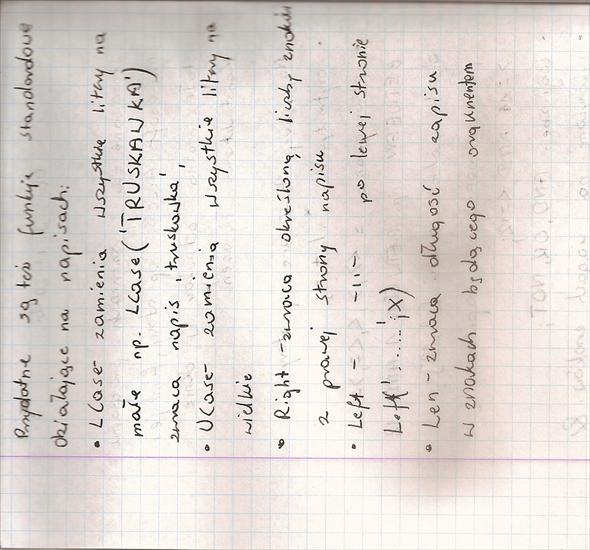 Przydatne są też funkcje standardowe
działające na napisach:
• LCase- zamienia wszystkie litery na
małe np. LCase('TRUSKAWKA')
zwraca napis 'truskawka'
• UCase- zamienia wszystkie litery na
wielkie
• Right - zwraca określoną liczbę znaków
z prawej strony napisu
• Left - -||- po lewej stronie
Left('......';X)
• Len - zwraca długość zapisu
w znakach będącego argumentem